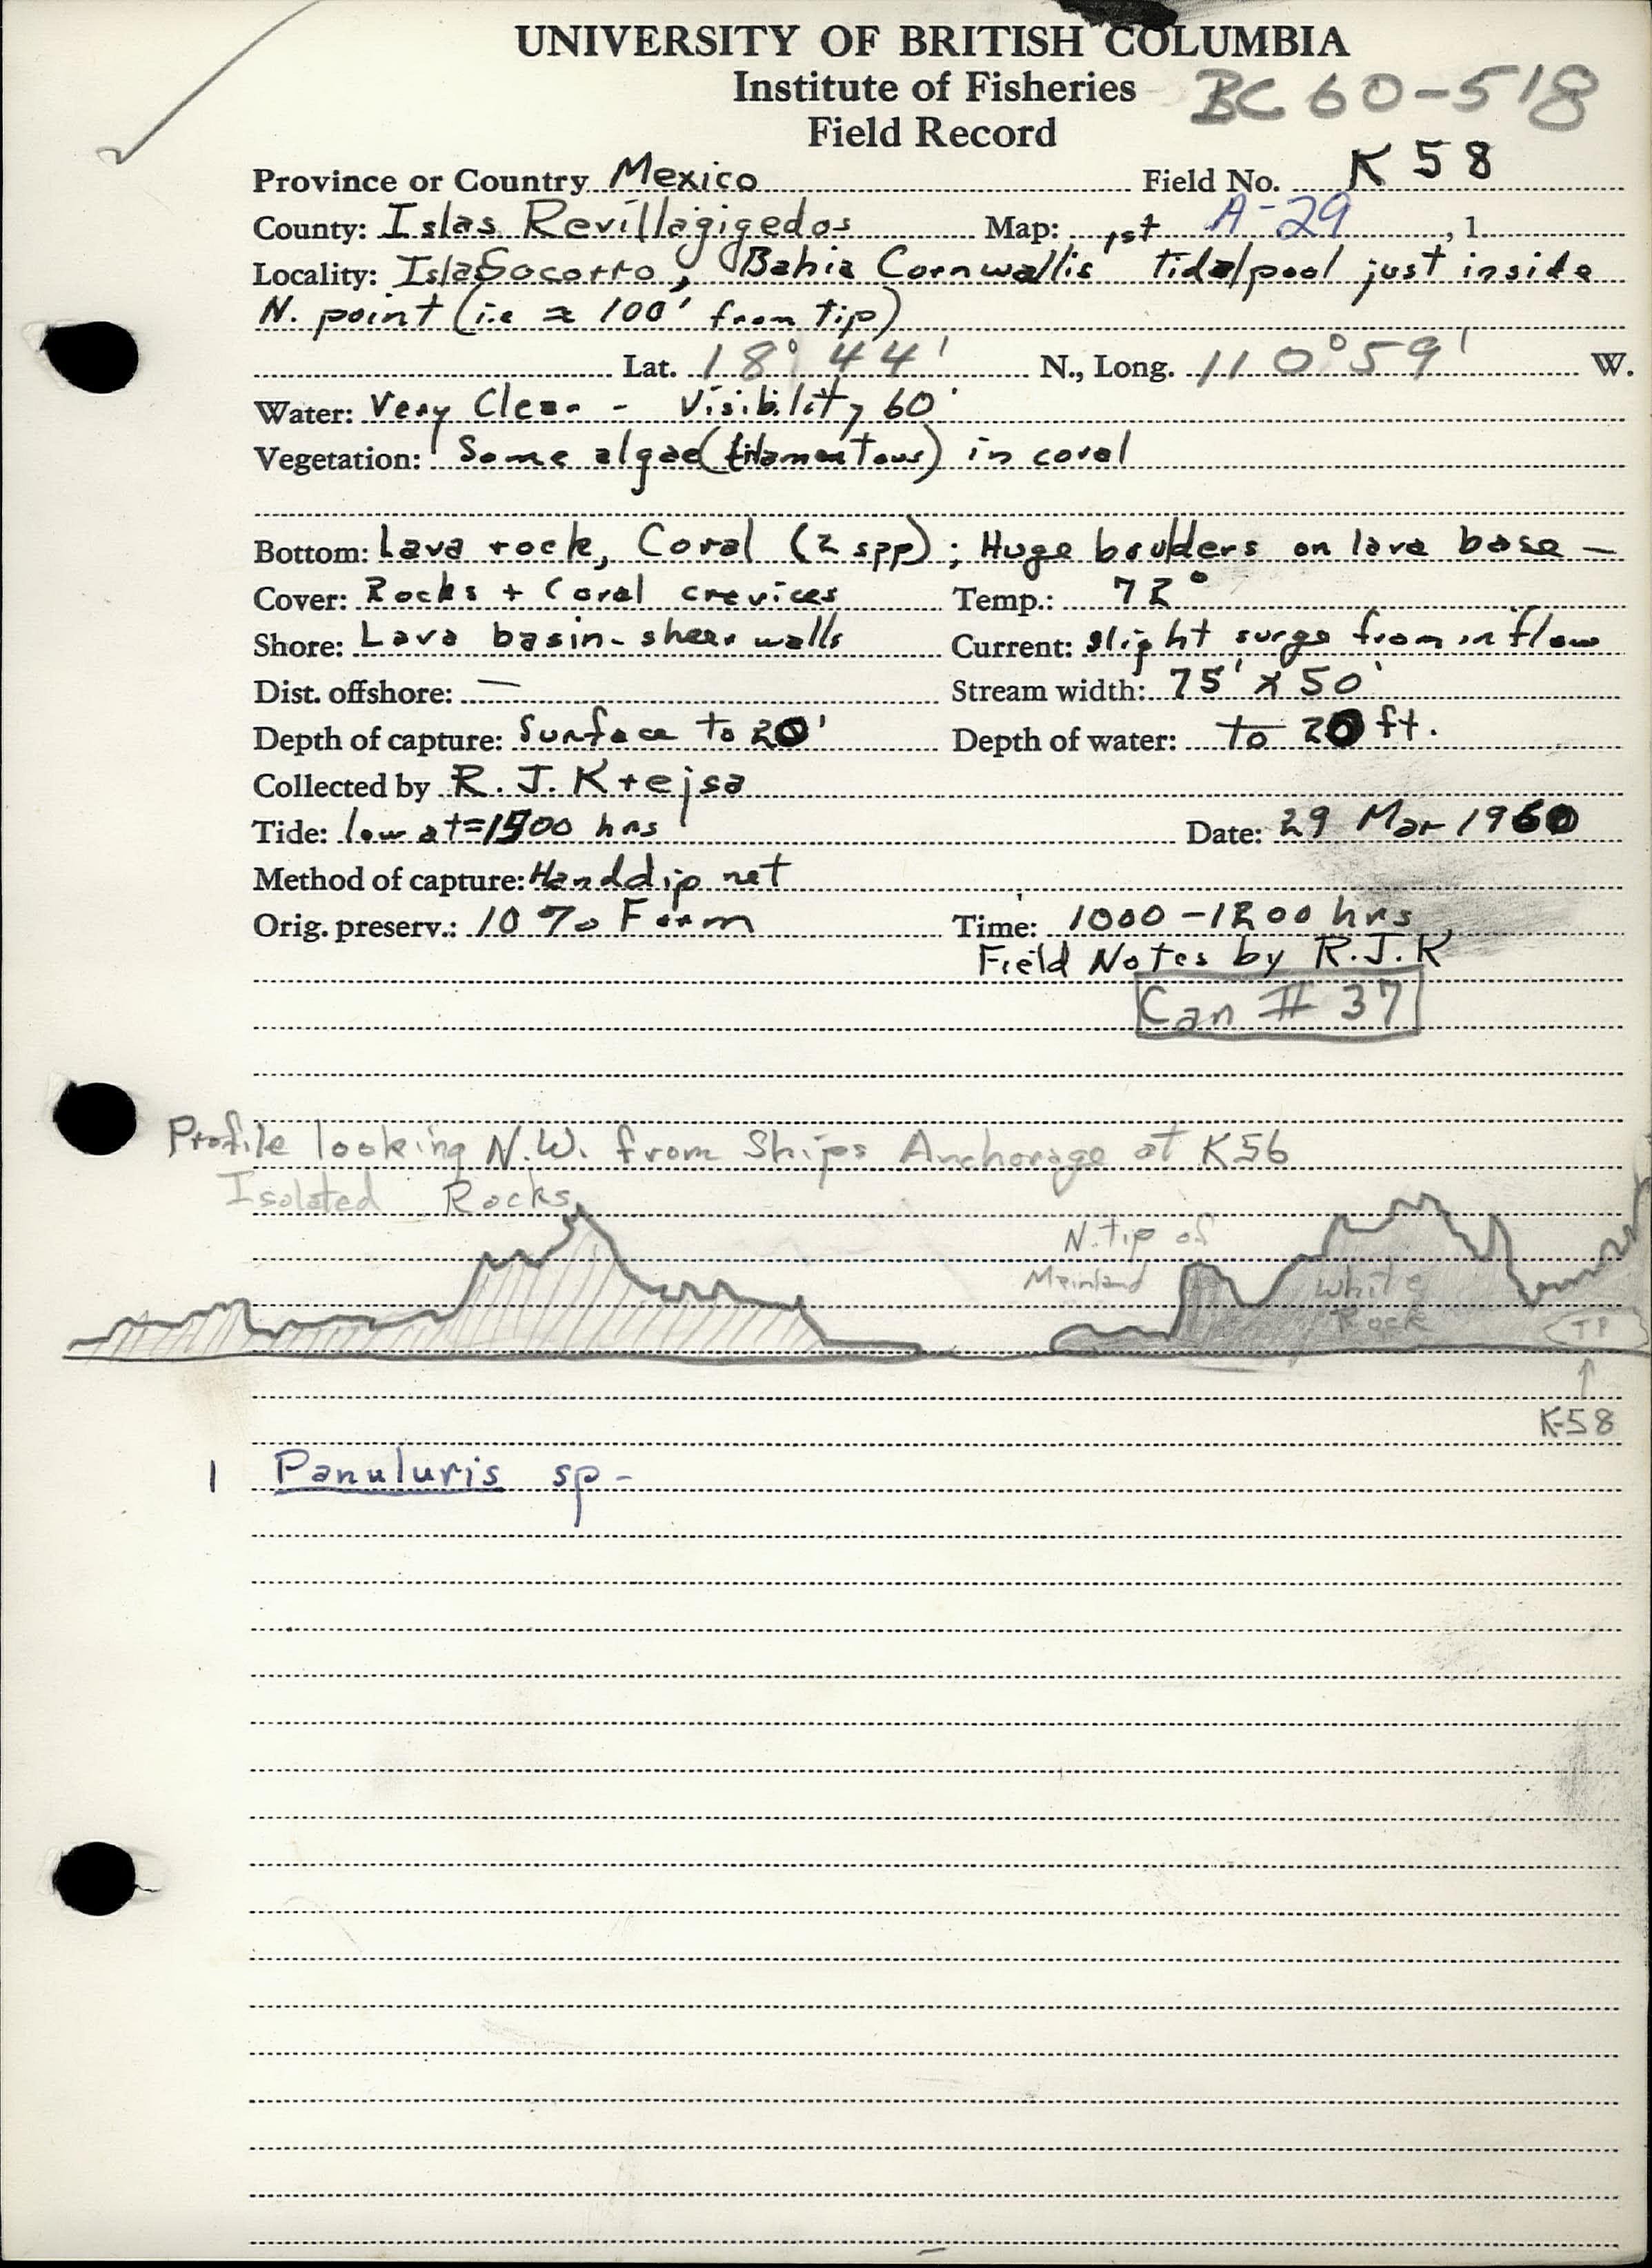 UNIVERSITY OF BRITISH COLUMBIA
Institute of Fisheries BC 60-518
Field Record
Province or Country Mexico Field No. K 58
County: Islas Revillagigedos Map: A-29, 1
1st
Locality: Isla Socorro, Bahia Cornwallis tidalpool just inside
N. point (i.e ≈ 100' from tip)
Lat. 18° 44' N., Long. 110° 59' W.
Water: Very Clear - Visibility 60'
Vegetation: Some algae (filamentous) in coral
Bottom: Lava rock, Coral (2 spp); Huge boulders on lava base —
Cover: Rocks + Coral crevices Temp.: 72°
Shore: Lava basin - sheer walls Current: slight surge from inflow
Dist. offshore: — Stream width: 75' x 50'
Depth of capture: Surface to 20' Depth of water: to 20 ft.
Collected by R. J. Krejsa
Tide: low at=1500 hrs Date: 29 Mar 1960
Method of capture: Handdip net
Orig. preserv.: 10 % Form Time: 1000-1200 hrs
Field Notes by R.J.K
Can # 37
Profile looking N.W. from Ships Anchorage at K56
Isolated Rocks
N. tip of
Mainland
White
Rock
TP
K-58
1 Panuluris sp -